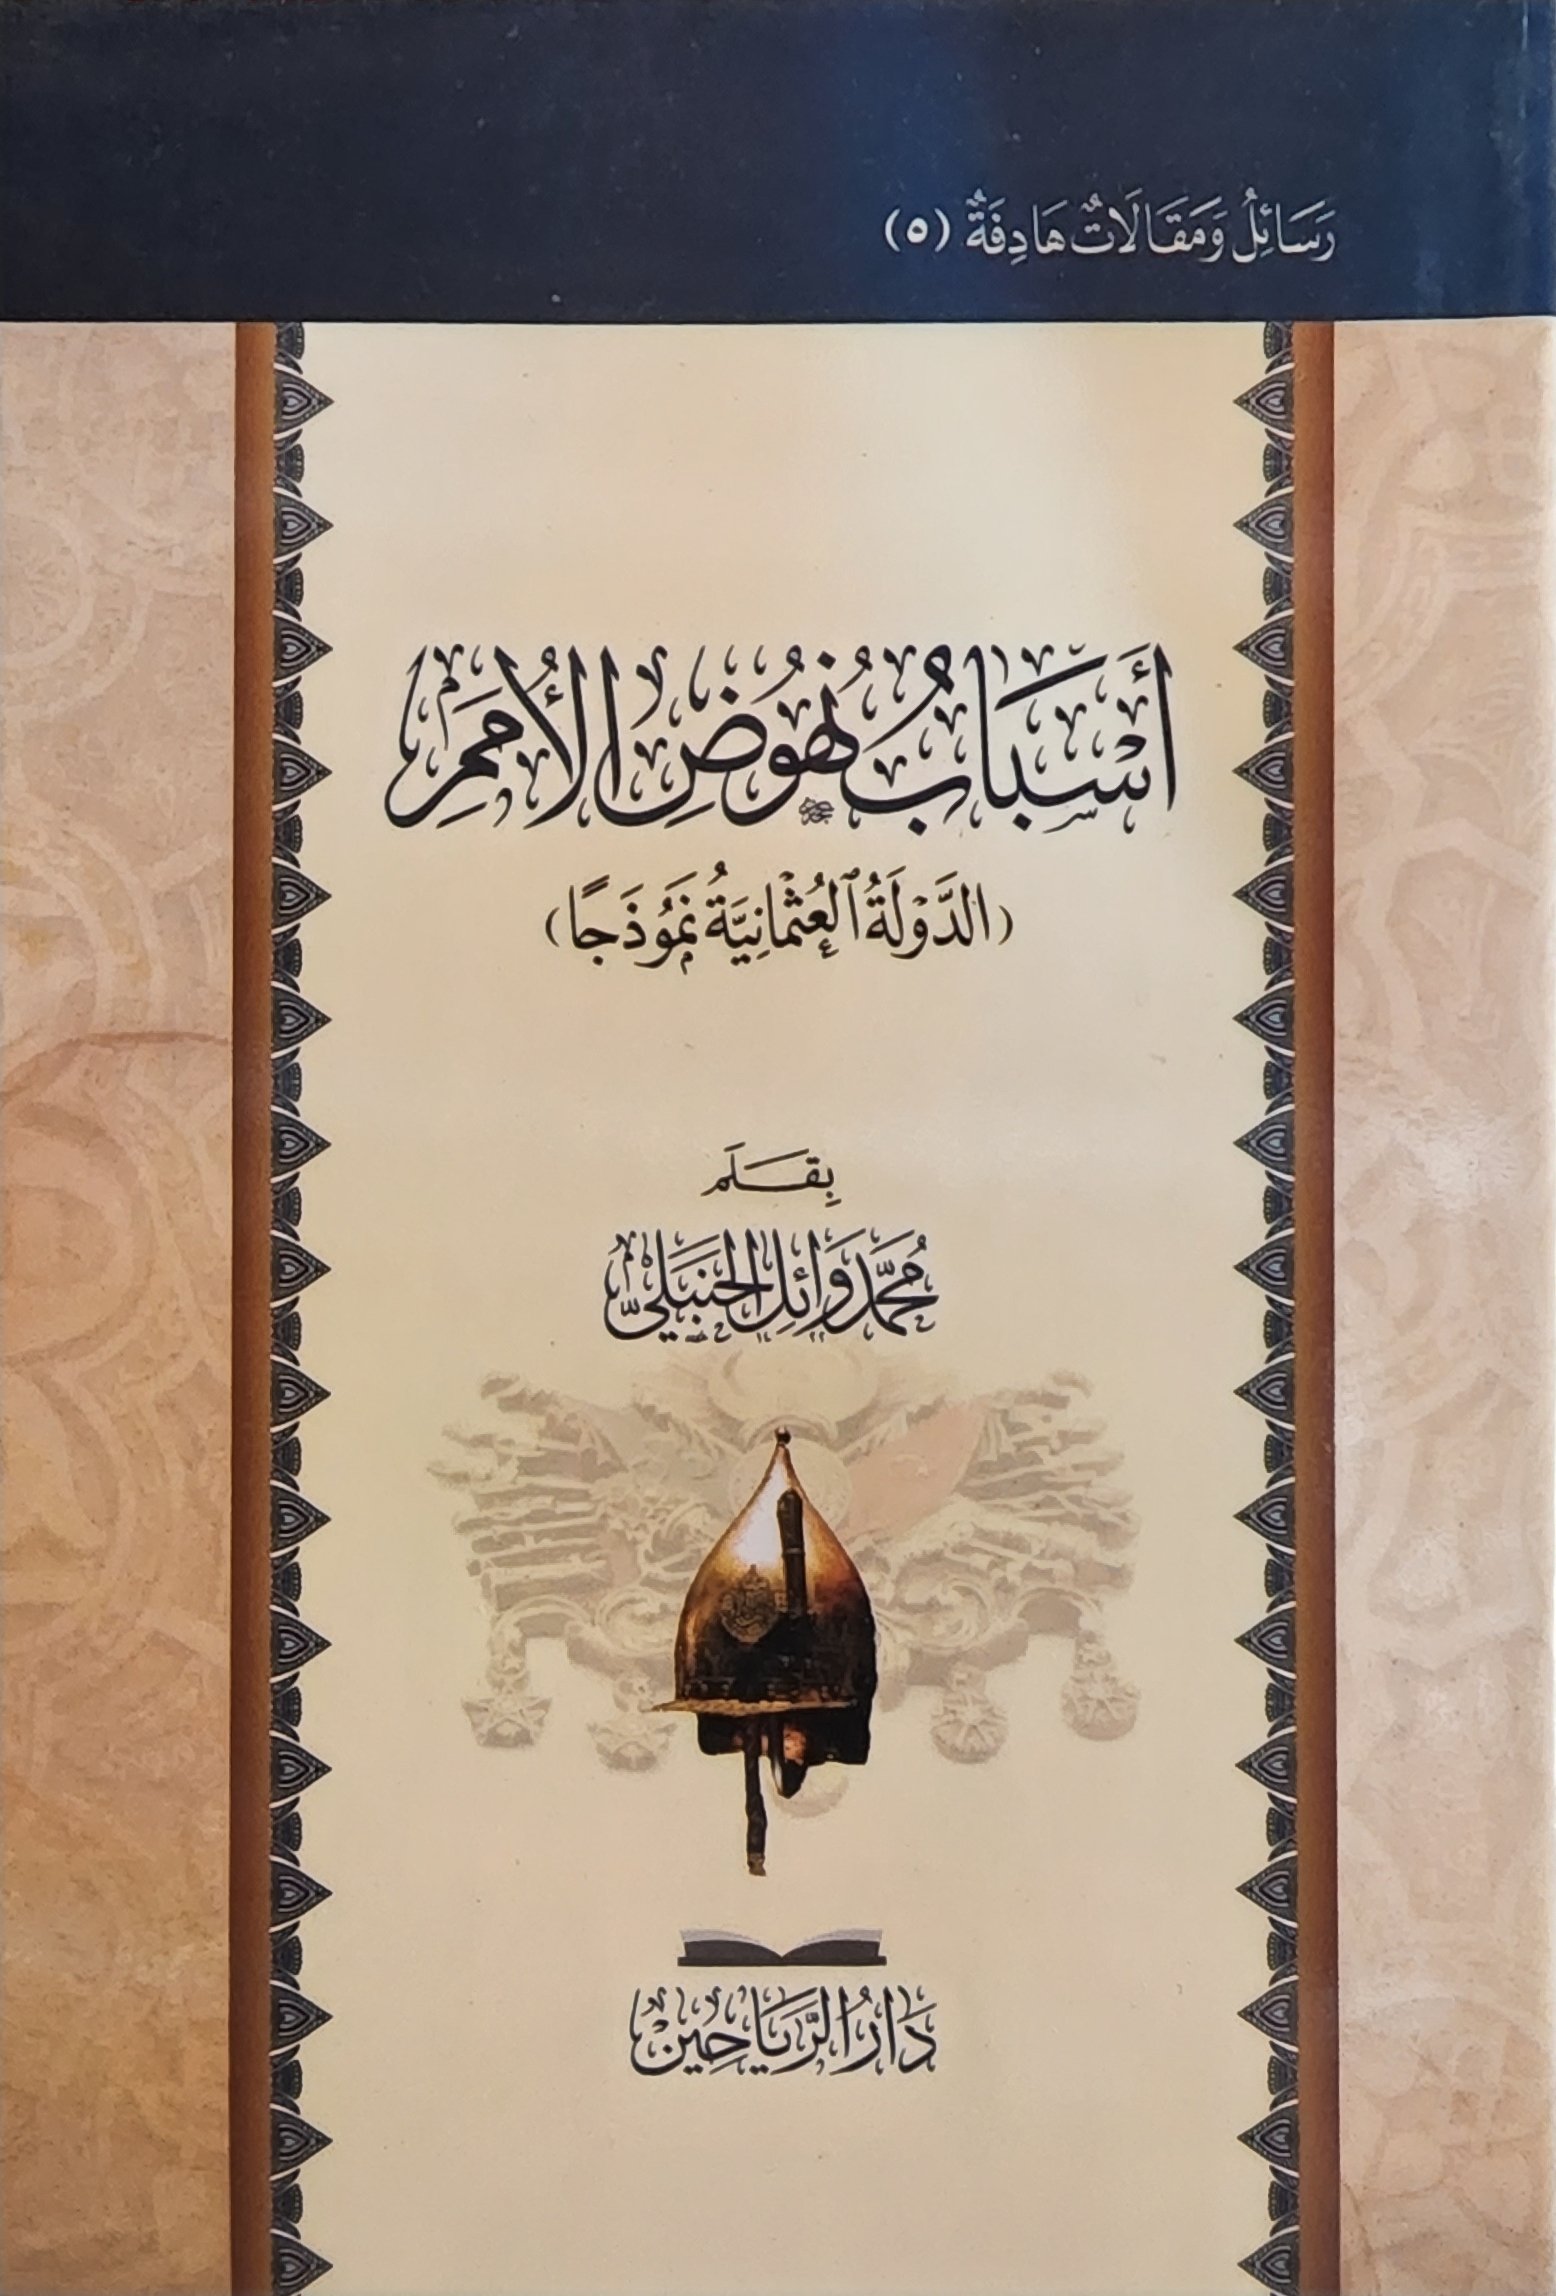 رَسَائِلُ وَمَقَالَاتٌ هَادِفَةٌ (٥)
أَسْبَابُ نُهُوضِ الأُمَمِ
(الدَّوْلَةُ ٱلعُثْمَانِيَّةُ نَمُوذَجًا)
بِقَلَم
مُحَمَّد وَائِل الحَنبَلِيّ
دَارُ الرَّيَاحِين